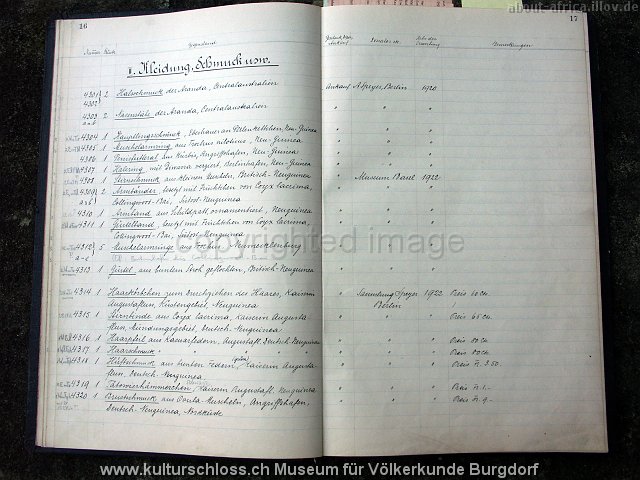 about-africa.illov.de
16
17
Nummer Stück
Gegenstand
Bemerkungen
II. Kleidung, Schmuck usw.
4301 2 Halsschmuck der Aranda, Centralaustralien Ankauf A. Speyer, Berlin 1920
4302
4303 2 Nasenstäbe der Aranda, Centralaustralien " " "
a-b
4304 1 Häuptlingsschmuck, Eberhauer an Neu-Guinea
4305 1 Muschelarmring aus Trochus niloticus, Neu-Guinea
4306 1 aus Kürbis, Angriffshafen, Neu-Guinea
4307 1 Halsring, mit verziert, Berlinhafen, Neu-Guinea
4308 1 Stirnschmuck aus kleinen Muscheln, Deutsch-Neuguinea " Museum Basel 1922
4309 2 Armbänder, besetzt mit Früchten von Coyx lacrima,
a-b Collingwood-Bai, Südost-Neuguinea
4310 1 Armband aus Schildpatt, ornamentiert, Neuguinea
4311 1 Gürtelband, besetzt mit Früchten von Coyx lacrima,
Collingwood-Bai, Südost-Neuguinea
4312 5 Muschelarmringe aus Trochus, Neumecklenburg
a-e
4313 1 Gürtel, aus buntem Stroh geflochten, Deutsch-Neuguinea
4314 1 Haarkörbchen zum Durchziehen des Haares, Kaiserin " Sammlung Speyer 1922 Preis 60 cts.
Augustafluss, Küstengebiet, Neuguinea Berlin
4315 1 Stirnbinde aus Coyx lacrima, Kaiserin Augusta- " " " Preis 65 cts.
fluss, Mündungsgebiet, Deutsch-Neuguinea
4316 1 Haarpfeil aus Kasuarfedern, Augustafl. Deutsch-Neuguinea " " " Preis 80 cts.
4317 1 Haarschmuck " " " Preis 80 cts.
4318 1 Hüftschmuck aus bunten Federn, Kaiserin Augusta- " " " Preis Fr. 3.50
fluss, Deutsch-Neuguinea
4319 1 Tätowierhämmerchen, Kaiserin Augustafl. Neuguinea " " " Preis Fr. 1.-
4320 1 Brustschmuck aus Ovula-Muscheln, Angriffshafen, " " " Preis Fr. 9.-
Deutsch-Neuguinea, Nordküste
copyrighted image
www.kulturschloss.ch Museum für Völkerkunde Burgdorf